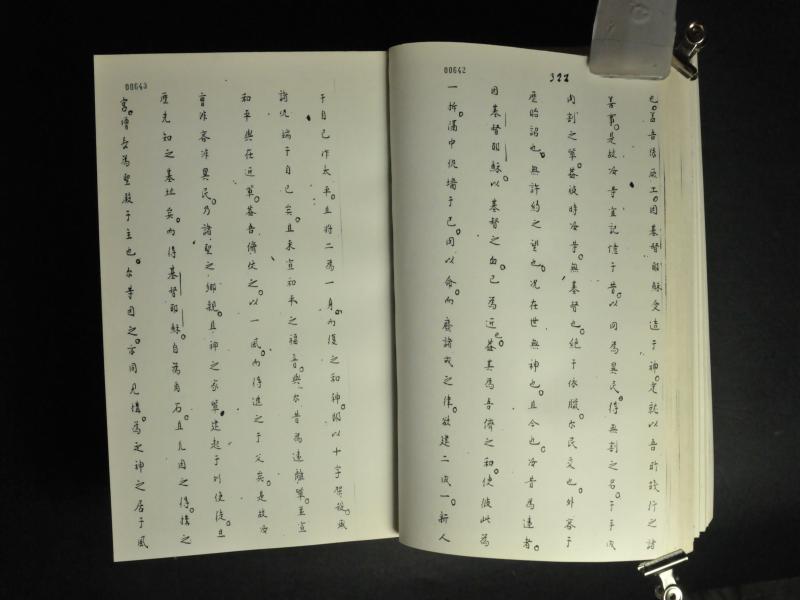 00642
322
也。蓋吾儕厥工。因基督耶穌受造于神。定就以吾所該行之諸
善事。是故汝等宜記憶于昔。以因為異民。得無割之名。于手成
肉割之輩。蓋彼時汝等無基督也。絕于依腹爾民交也。外客于
歷貽詔也。無許約之望也。况在世無神也。且今也。汝昔為遠者。
因基督耶穌以基督之血已為近也。蓋其為吾儕之和。使彼此為
一。拆滿中仇墻于己。肉以命而廢諸戒之律。致建二成一新人
00643
于自己作太平。且將二為一身。而復之和神服以十字架。殺滅
諸仇端于自己矣。且來宣和平之福音。與尔昔為遠離輩。並宣
和平與在近輩。蓋吾儕仗之。以一風而得進之于父矣。是故汝
曹非客非異民。乃諸聖之鄉親。且神之家輩。建起于列使徒。且
歷先知之基址矣。而得基督耶穌自為角石。且凡因之得構之
宮。增長為聖殿于主也。尔等因之亦同見構。為神之居于風